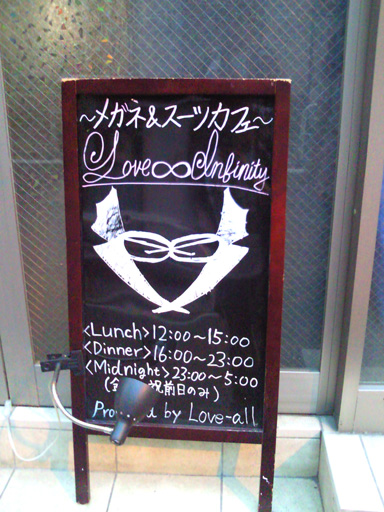 〜メガネ&スーツカフェ〜
Love∞Infinity
<Lunch>12:00〜15:00
<Dinner>16:00〜23:00
<Midnight>23:00〜5:00
(金 祝前日のみ)
by Love-all